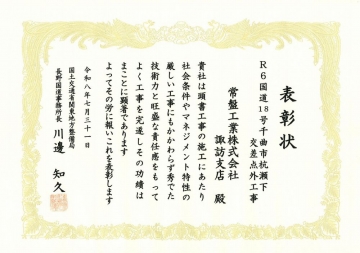 表彰状
R6国道18号千曲市杭瀬下
交差点外工事
常盤工業株式会社
諏訪支店 殿
貴社は頭書工事の施工にあたり
社会条件やマネジメント特性の
厳しい工事にもかかわらず秀でた
技術力と旺盛な責任感をもって
よく工事を完遂しその功績は
まことに顕著であります
よってその労に報いこれを表彰します
令和八年七月三十一日
国土交通省関東地方整備局
長野国道事務所長 川邊 知久